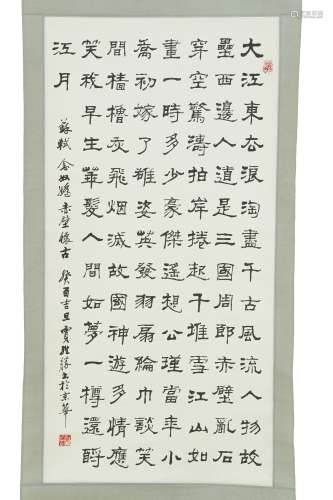 大江東去浪淘盡千古風流人物故
壘西邊人道是三國周郎赤壁亂石
穿空驚濤拍岸捲起千堆雪江山如
畫一時多少豪傑遙想公瑾當年小
喬初嫁了雄姿英發羽扇綸巾談笑
間檣櫓灰飛烟滅故國神游多情應
笑我早生華髮人間如夢一樽還酹
江月
蘇軾念奴嬌赤壁懷古 癸酉吉旦賈於京華